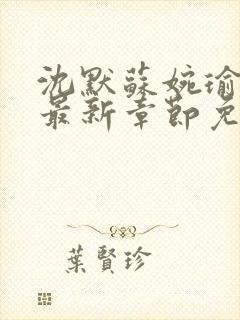 沈默蘇婉瑜
最新章節免
葉賢珍